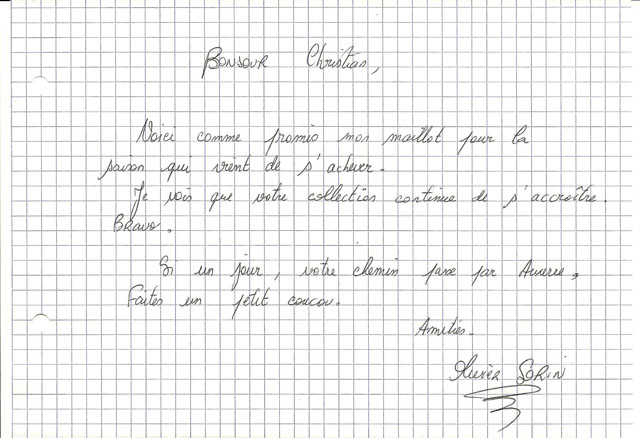 BONJOUR Christian,
Voici comme promis mon maillot pour la
saison qui vient de s'achever.
Je vois que votre collection continue de s'accroître.
BRAVO.
Si un jour, votre chemin passe par Auxerre,
Faites un petit coucou.
Amitiés.
SORIN